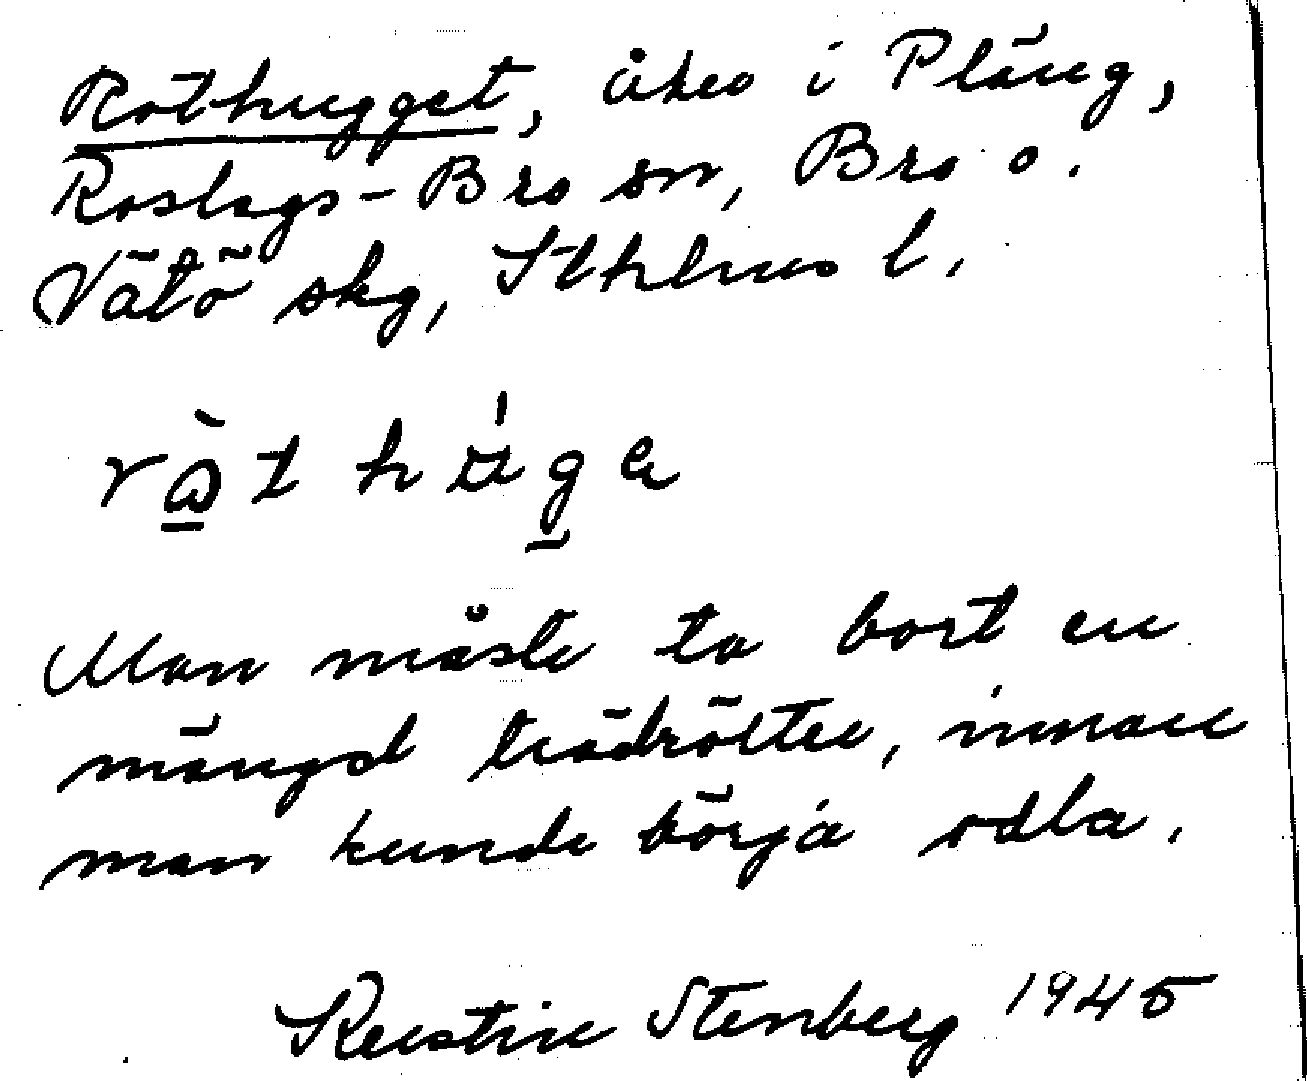 Rothugget, åker i Pläng,
Roslags-Bro sn, Bro o.
Vätö skg, Sthlms l.
Man måste ta bort en
mängd trädrötter, innan
man kunde börja odla.
Kerstin Stenberg 1945